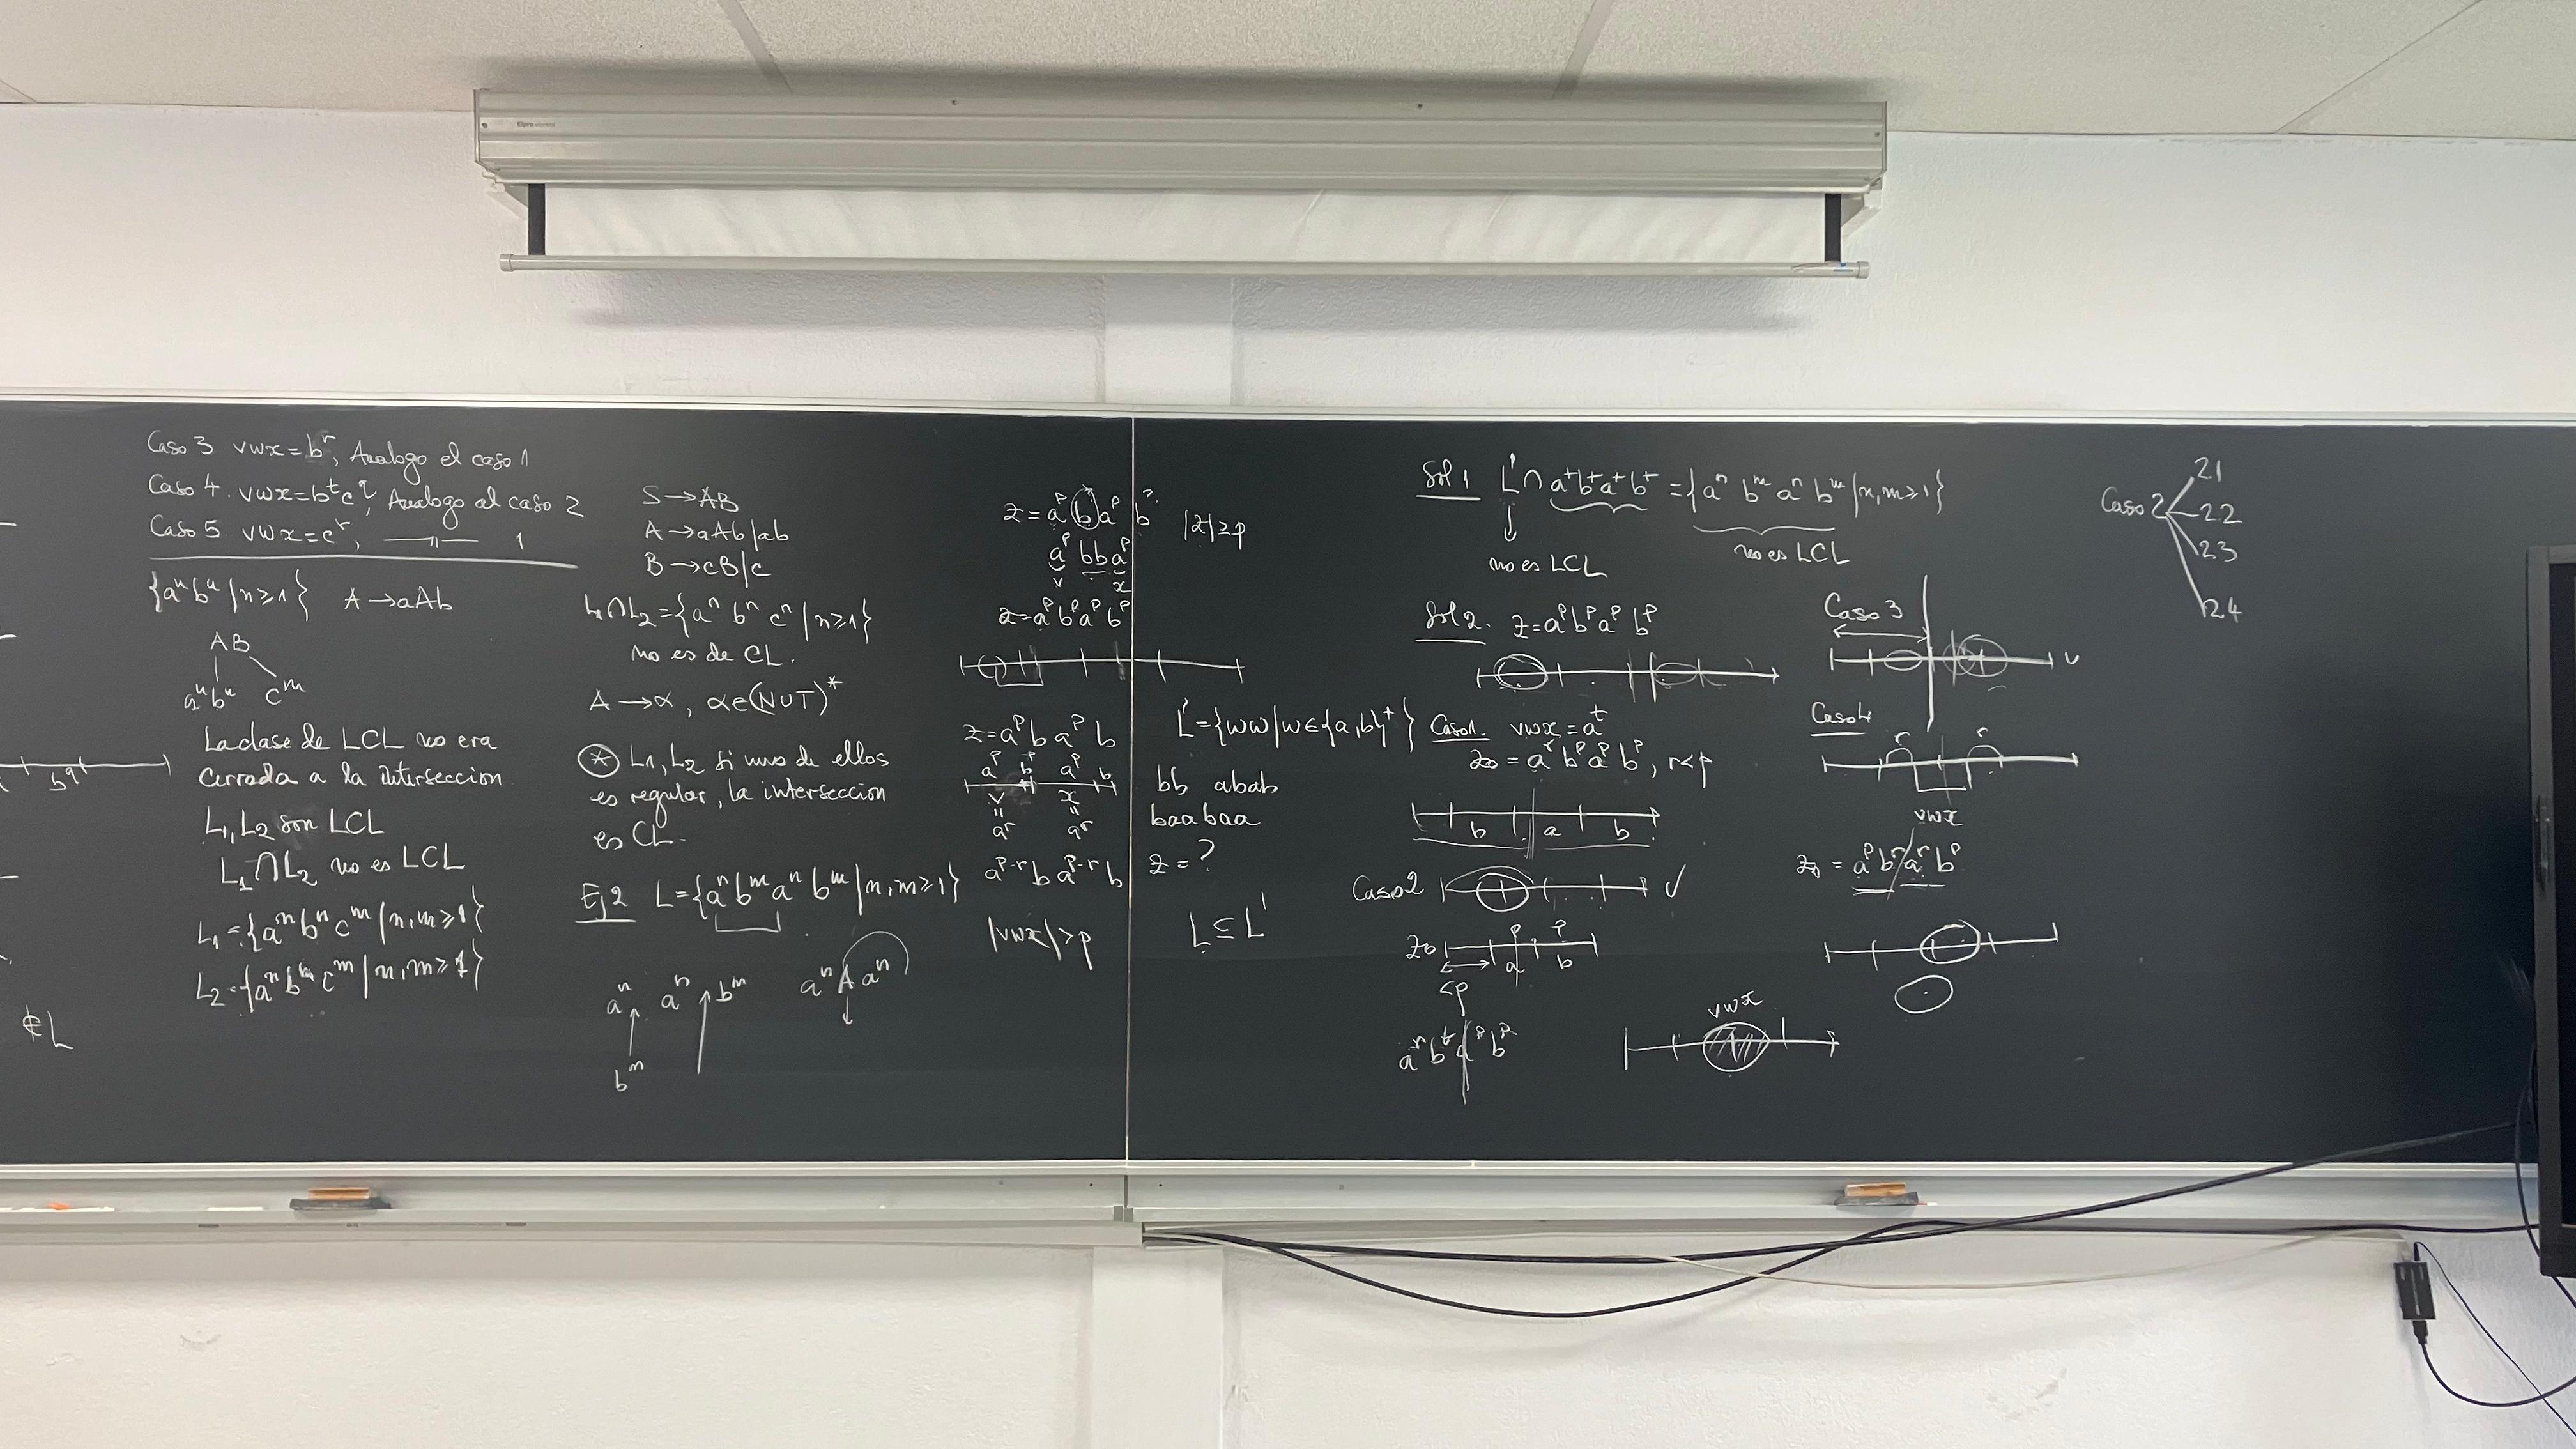 Elpro
Caso 3 vwx=bʳ, Analogo el caso 1
Caso 4. vwx=bᵗc^q, Analogo al caso 2
Caso 5 vwx=cʳ, —〃— 1
{aⁿbⁿ|n≥1} A→aAb
AB
aⁿbⁿ cᵐ
La clase de LCL no era
cerrada a la interseccion
L₁, L₂ son LCL
L₁∩L₂ no es LCL
L₁={aⁿbⁿcᵐ|n,m≥1}
∉L
b^q
S→AB
A→aAb|ab
B→cB|c
L₁∩L₂={aⁿbⁿcⁿ|n≥1}
no es de CL.
A→α, α∈(N∪T)*
* L1, L2 si uno de ellos
es regular, la interseccion
es CL.
Ej2 L={aⁿbᵐaⁿbᵐ|n,m≥1}
aⁿ aⁿ bᵐ aⁿAaⁿ
bᵐ
z=aᵖ(b)aᵖb? |z|≥p
aᵖbbaᵖ
v x
z=aᵖbᵖaᵖbᵖ
z=aᵖbaᵖb
aᵖ bᵖ aᵖ b
v x
= =
aʳ aʳ
aᵖ⁻ʳbaᵖ⁻ʳb
|vwx|>p
L'={ww|w∈{a,b}⁺}
bb abab
baabaa
z=?
L⊆L'
Sol 1 L'∩a⁺b⁺a⁺b⁺={aⁿbᵐaⁿbᵐ|n,m≥1}
no es LCL no es LCL
Sol 2. z=aᵖbᵖaᵖbᵖ
Caso 1. vwx=aᵗ
z₀=aʳbᵖaᵖbᵖ, r<p
b a b
Caso 2 ✓
z₀ p p
a b
<p
aʳbᵗaᵖbᵖ
vwx
Caso 3
Caso 4
r r
vwx
z₀=aᵖbʳ/aʳbᵖ
Caso 2
21
22
23
24